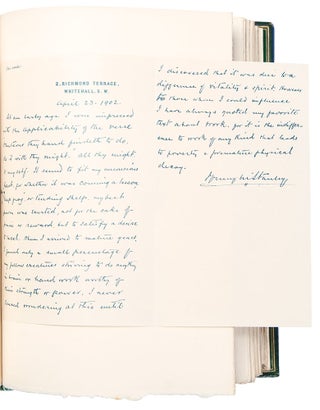 2, RICHMOND TERRACE,
WHITEHALL, S. W.
April 23 - 1902.
At an early age I was impressed
with the applicability of the verse
thy hand findeth to do,
do it with thy might. All thy might
myself. It seemed to fit my
for whether it was coming a lesson
or tending sheep, my best
power was exerted, not for the sake of
or reward but to satisfy a desire
to excel. When I arrived to mature years,
I found only a small percentage of
my fellow creatures striving to do anything
in brain or hand work worthy of
their strength or power. I never
ceased wondering at this until
I discovered that it was due to a
difference of vitality & spirit. However
to those whom I could influence
I have always quoted my favorite
text about work, for it is the indiffer-
ence to work of any kind that leads
to poverty & premature physical
decay.
Henry M Stanley